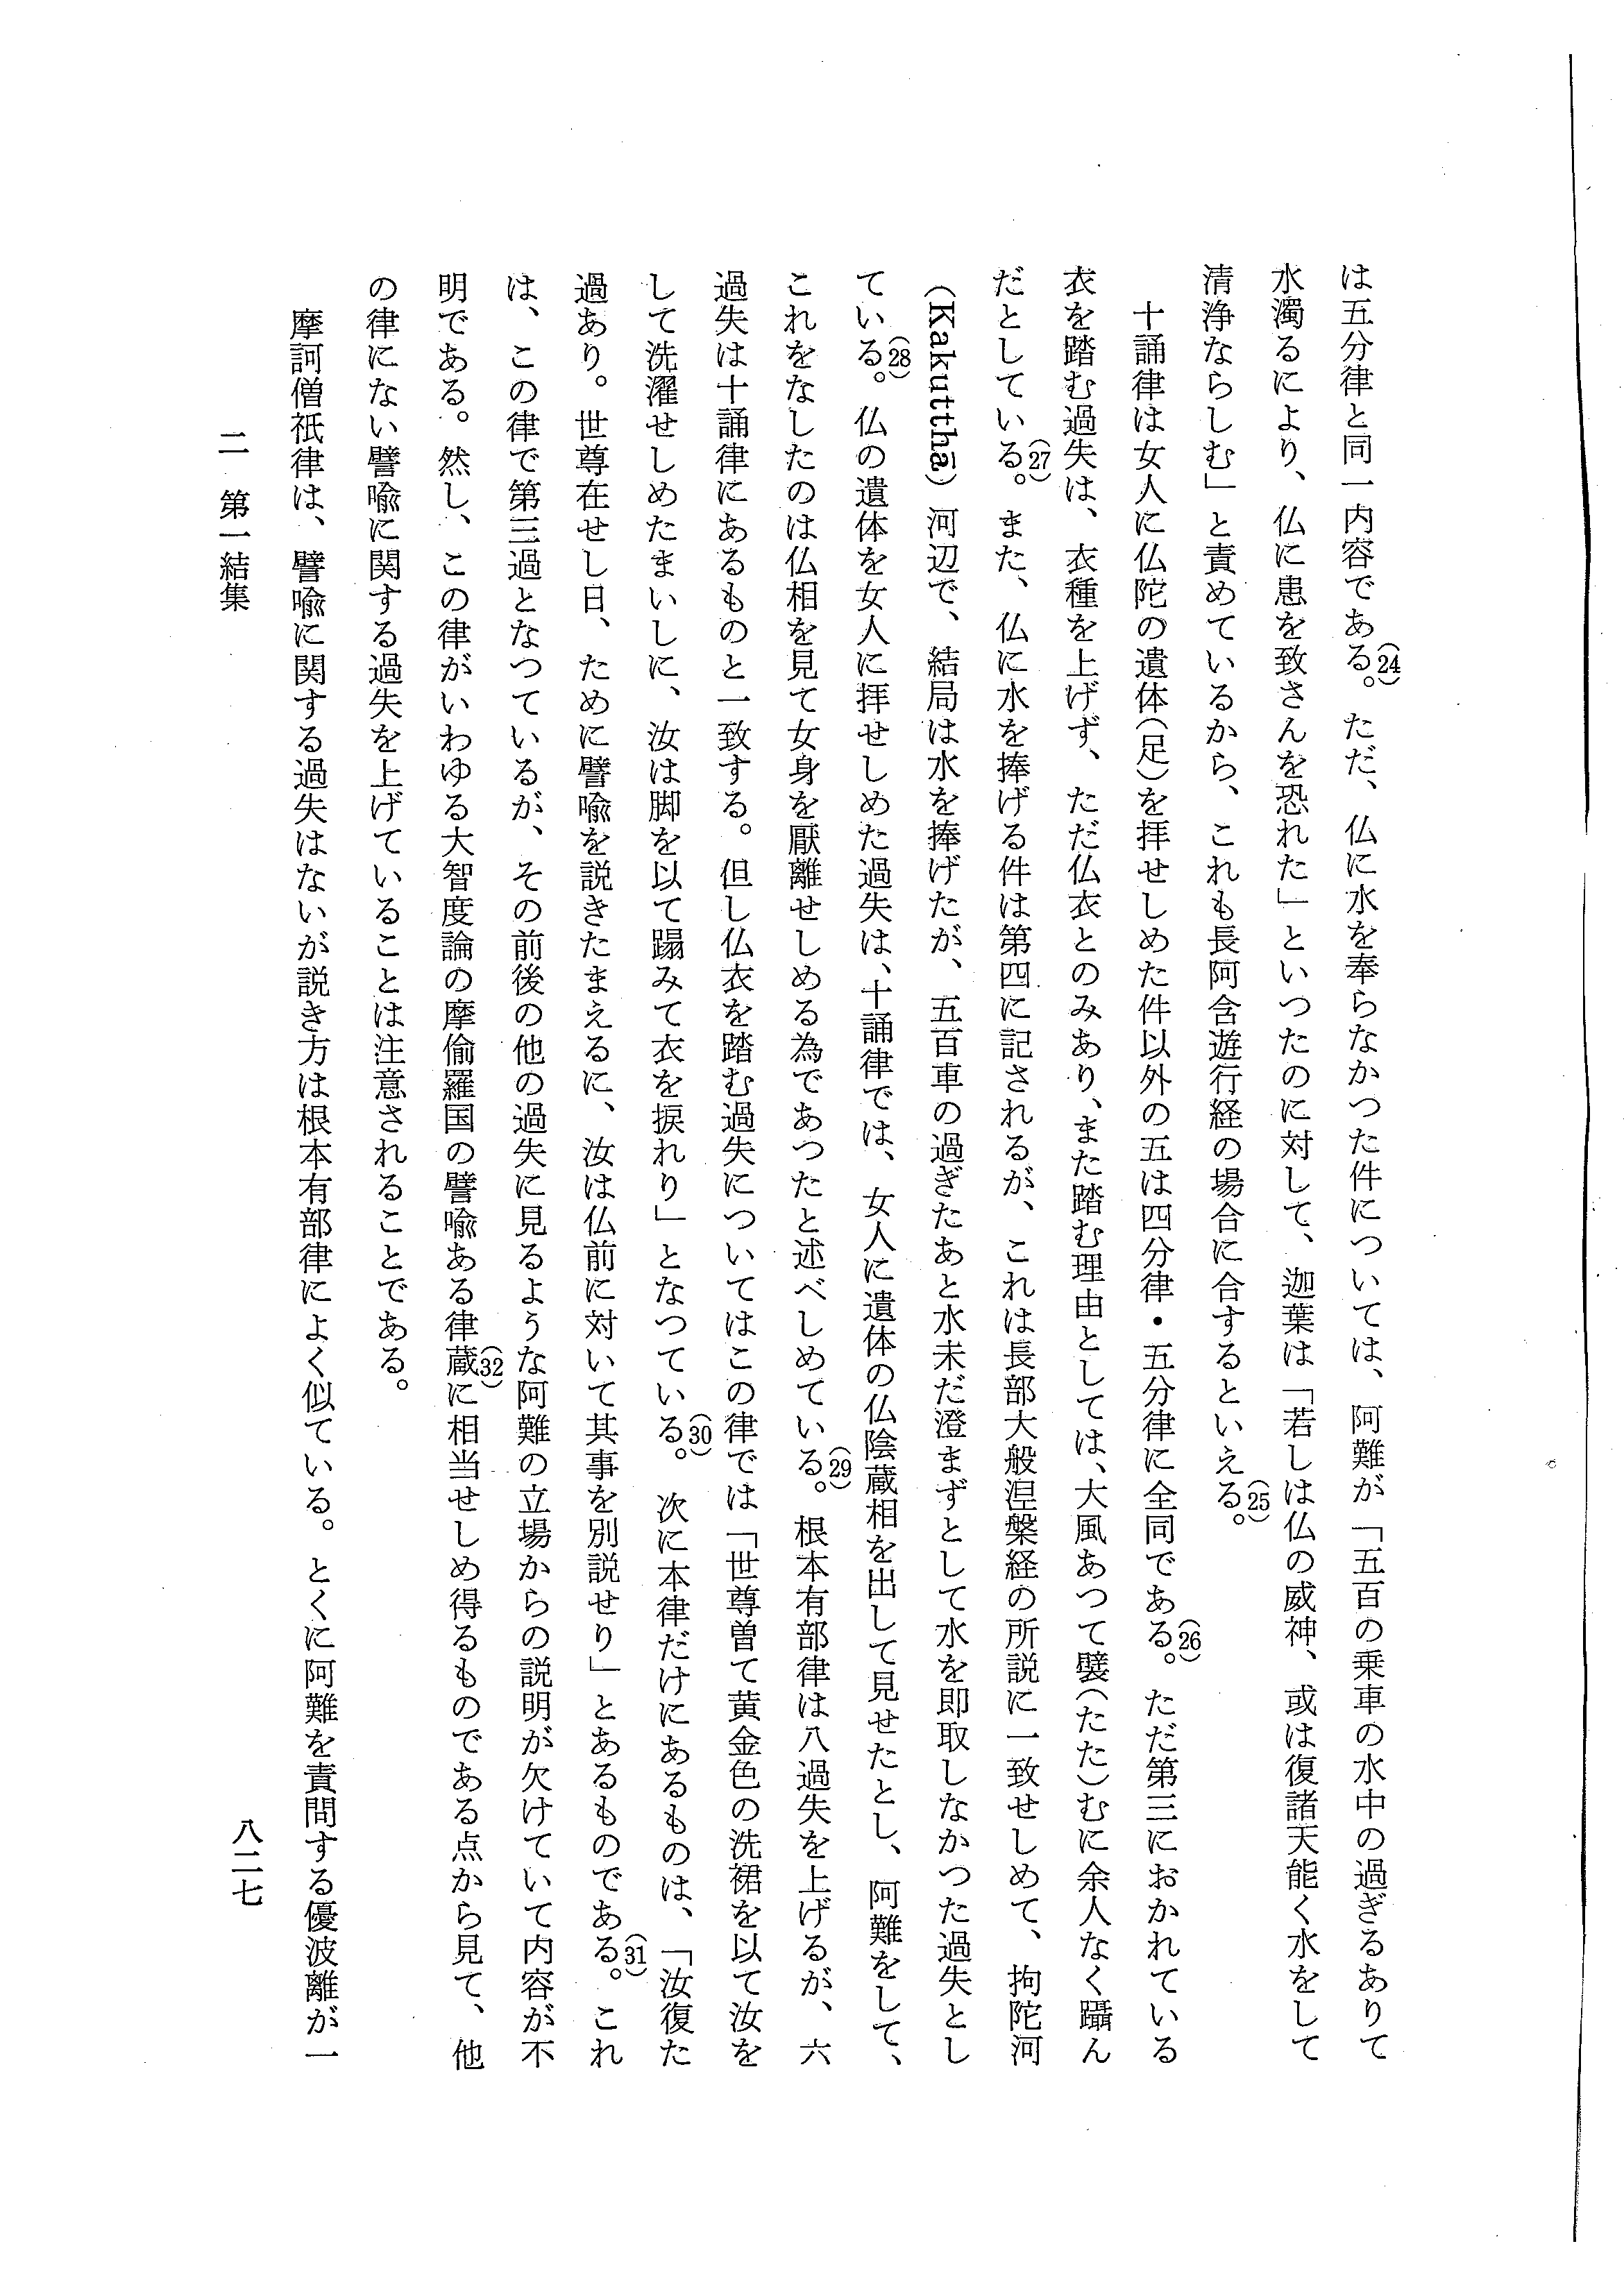 は五分律と同一内容である。(24)ただ、仏に水を奉らなかつた件については、阿難が「五百の乗車の水中の過ぎるありて
水濁るにより、仏に患を致さんを恐れた」といつたのに対して、迦葉は「若しは仏の威神、或は復諸天能く水をして
清浄ならしむ」と責めているから、これも長阿含遊行経の場合に合するといえる。(25)
十誦律は女人に仏陀の遺体(足)を拝せしめた件以外の五は四分律・五分律に全同である。(26)ただ第三におかれている
衣を踏む過失は、衣種を上げず、ただ仏衣とのみあり、また踏む理由としては、大風あつて襞(たた)むに余人なく躡ん
だとしている。(27)また、仏に水を捧げる件は第四に記されるが、これは長部大般涅槃経の所説に一致せしめて、拘陀河
(Kakutthā)河辺で、結局は水を捧げたが、五百車の過ぎたあと水未だ澄まずとして水を即取しなかつた過失とし
ている。(28)仏の遺体を女人に拝せしめた過失は、十誦律では、女人に遺体の仏陰蔵相を出して見せたとし、阿難をして、
これをなしたのは仏相を見て女身を厭離せしめる為であつたと述べしめている。(29)根本有部律は八過失を上げるが、六
過失は十誦律にあるものと一致する。但し仏衣を踏む過失についてはこの律では「世尊曽て黄金色の洗裙を以て汝を
して洗濯せしめたまいしに、汝は脚を以て蹋みて衣を捩れり」となつている。(30)次に本律だけにあるものは、「汝復た
過あり。世尊在せし日、ために譬喩を説きたまえるに、汝は仏前に対いて其事を別説せり」とあるものである。(31)これ
は、この律で第三過となつているが、その前後の他の過失に見るような阿難の立場からの説明が欠けていて内容が不
明である。然し、この律がいわゆる大智度論の摩偸羅国の譬喩ある律蔵(32)に相当せしめ得るものである点から見て、他
の律にない譬喩に関する過失を上げていることは注意されることである。
摩訶僧祇律は、譬喩に関する過失はないが説き方は根本有部律によく似ている。とくに阿難を責問する優波離が一
二 第一結集
八二七